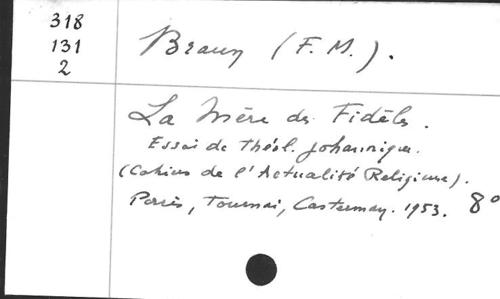 318
131
2
Braun (F. M.).
La Mère des Fidèles.
Essai de Théol. johannique.
(Cahiers de l'Actualité Religieuse).
Paris, Tournai, Casterman. 1953. 8°